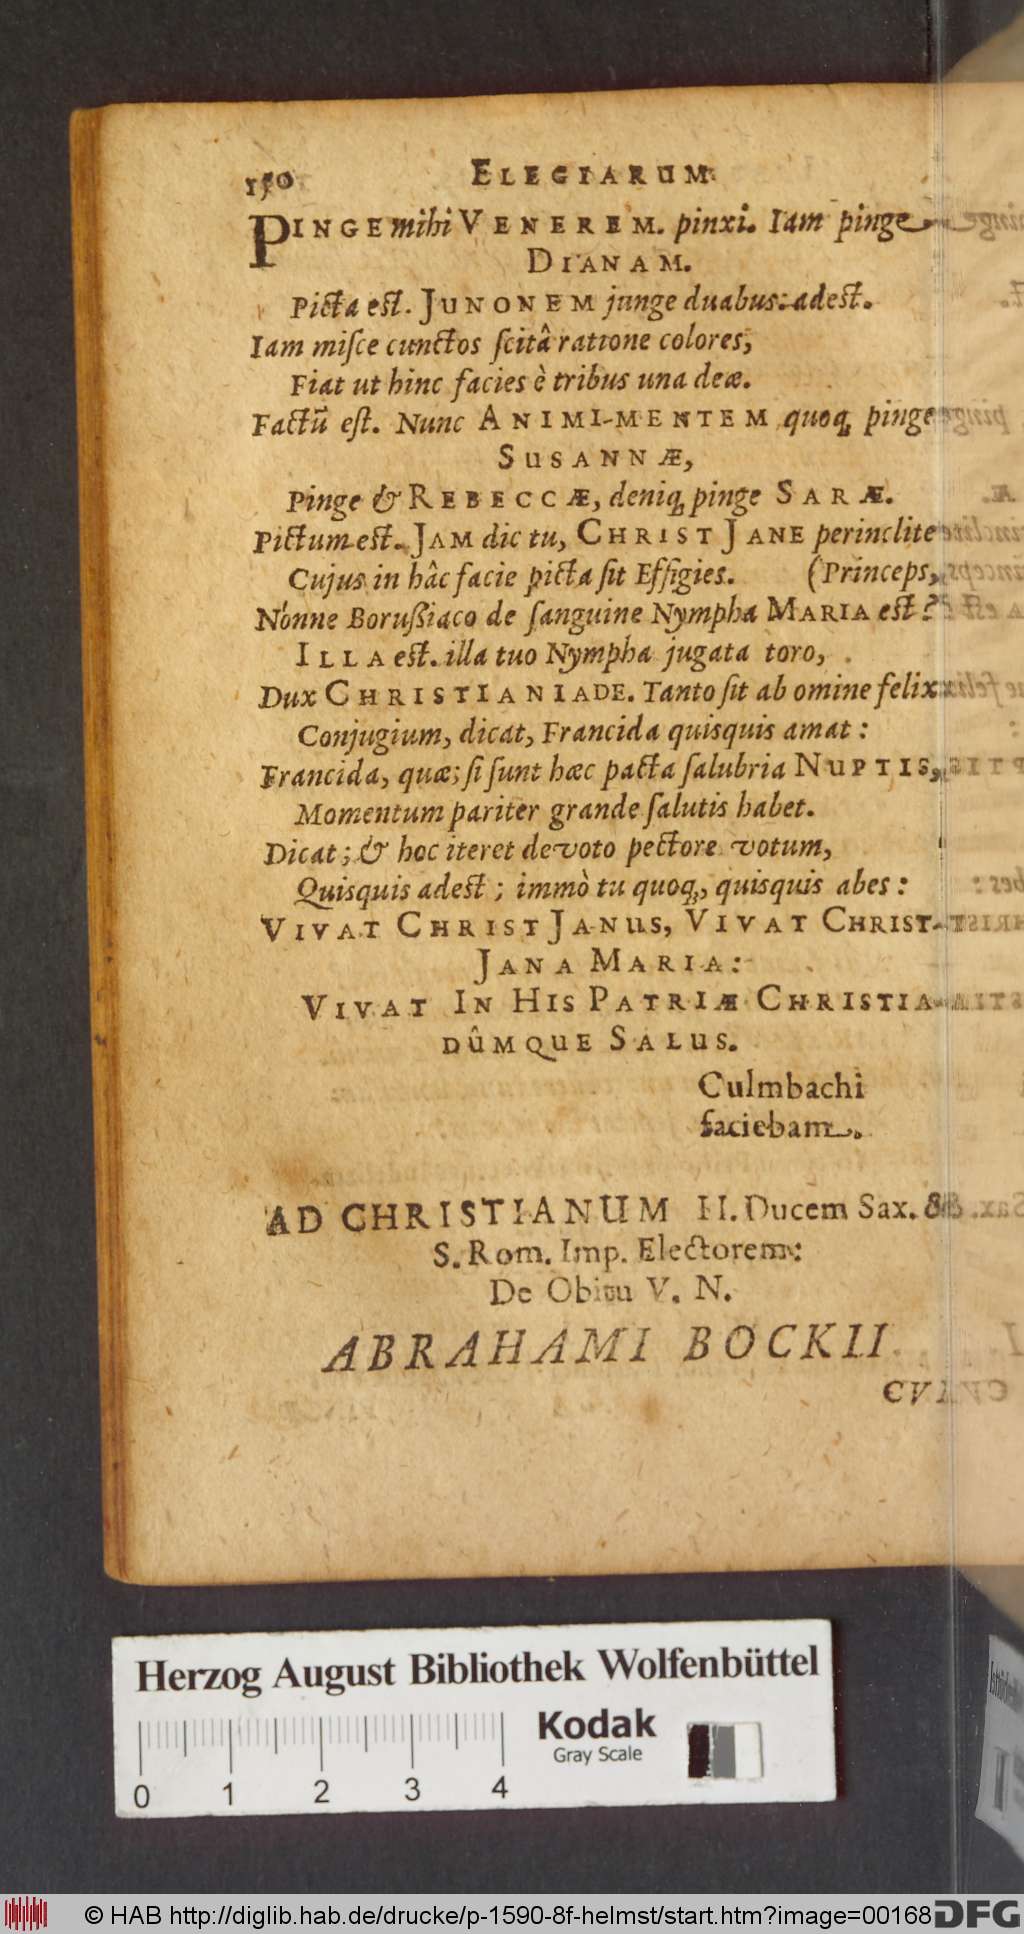 150 ELEGIARUM
PINGE mihi VENEREM. pinxi. Iam pinge
DIANAM.
Picta est. JUNONEM junge duabus: adest.
Iam misce cunctos scitâ ratione colores,
Fiat ut hinc facies è tribus una deæ.
Factū est. Nunc ANIMI-MENTEM quoq; pinge
SUSANNÆ,
Pinge & REBECCÆ, deniq; pinge SARÆ.
Pictum est. JAM dic tu, CHRIST JANE perinclite
Cujus in hâc facie picta sit Effigies. (Princeps,
Nonne Borußiaco de sanguine Nympha MARIA est?
ILLA est. illa tuo Nympha jugata toro,
Dux CHRISTIANIADE. Tanto sit ab omine felix
Conjugium, dicat, Francida quisquis amat:
Francida, quæ; si sunt hæc pacta salubria NUPTIS,
Momentum pariter grande salutis habet.
Dicat; & hoc iteret devoto pectore votum,
Quisquis adest; immò tu quoq;, quisquis abes:
VIVAT CHRIST JANUS, VIVAT CHRIST-
JANA MARIA:
VIVAT IN HIS PATRIÆ CHRISTIA-
DÛMQUE SALUS.
Culmbachi
faciebam.
AD CHRISTIANUM II. Ducem Sax. &
S. Rom. Imp. Electorem:
De Obitu V. N.
ABRAHAMI BOCKII
Herzog August Bibliothek Wolfenbüttel
Kodak
Gray Scale
0 1 2 3 4
© HAB http://diglib.hab.de/drucke/p-1590-8f-helmst/start.htm?image=00168
DFG